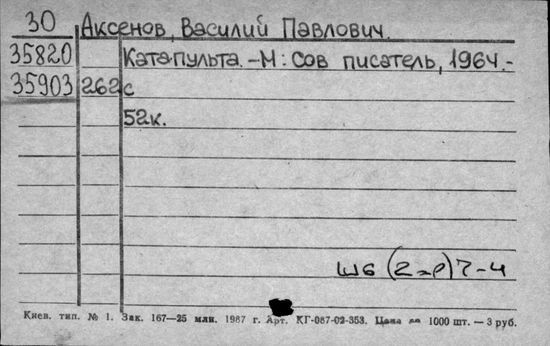 30 Аксенов, Василий Павлович.
35820 Катапульта. –М: Сов писатель, 1964.-
35903 262с
52к.
Ш6 (2=Р) 7-4
Киев. тип. № 1. Зак. 167—25 млн. 1987 г. Арт. КГ-087-02-353. Цена за 1000 шт. — 3 руб.